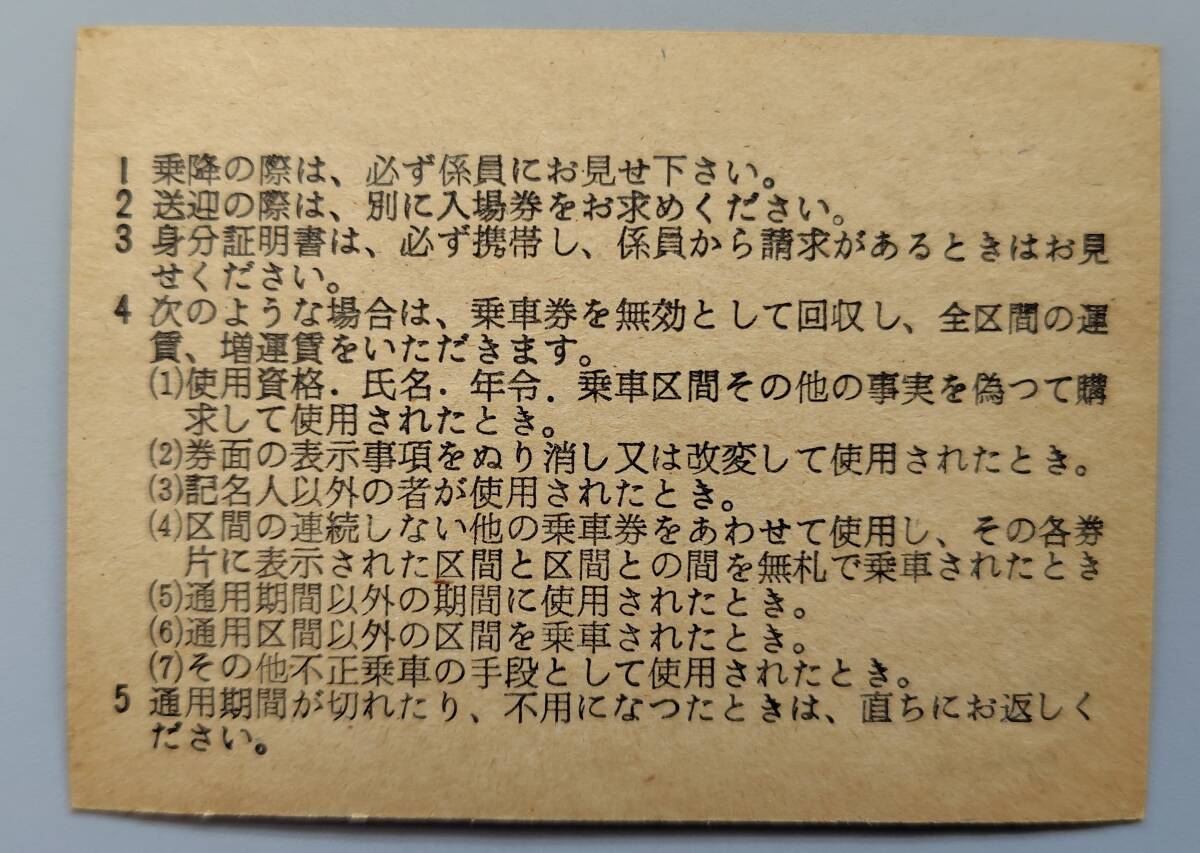 1 乗降の際は、必ず係員にお見せ下さい。
2 送迎の際は、別に入場券をお求めください。
3 身分証明書は、必ず携帯し、係員から請求があるときはお見
せください。
4 次のような場合は、乗車券を無効として回収し、全区間の運
賃、増運賃をいただきます。
(1)使用資格．氏名．年令．乗車区間その他の事実を偽つて購
求して使用されたとき。
(2)券面の表示事項をぬり消し又は改変して使用されたとき。
(3)記名人以外の者が使用されたとき。
(4)区間の連続しない他の乗車券をあわせて使用し、その各券
片に表示された区間と区間との間を無札で乗車されたとき
(5)通用期間以外の期間に使用されたとき。
(6)通用区間以外の区間を乗車されたとき。
(7)その他不正乗車の手段として使用されたとき。
5 通用期間が切れたり、不用になつたときは、直ちにお返しく
ださい。